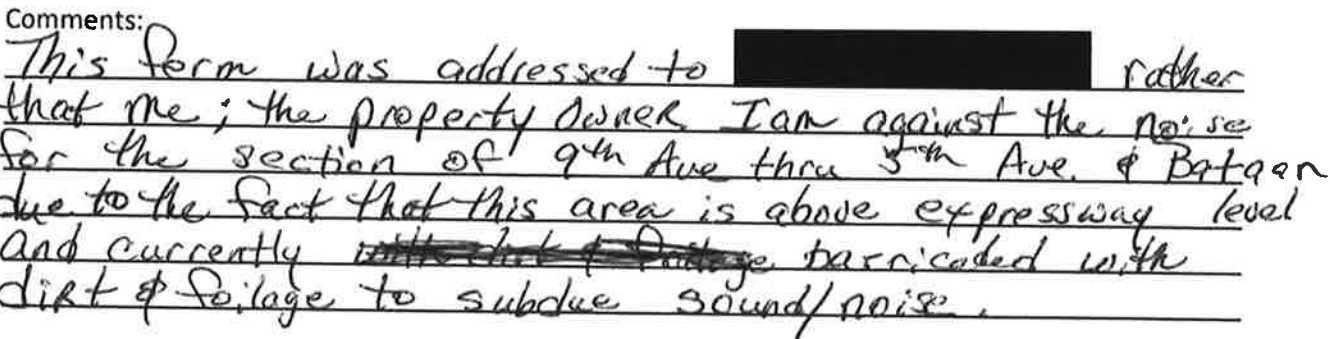 Comments:
This form was addressed to rather
that me; the property owner. I am against the noise
for the section of 9th Ave thru 5th Ave. & Bataan
due to the fact that this area is above expressway level
and currently barricaded with
dirt & foilage to subdue sound/noise.